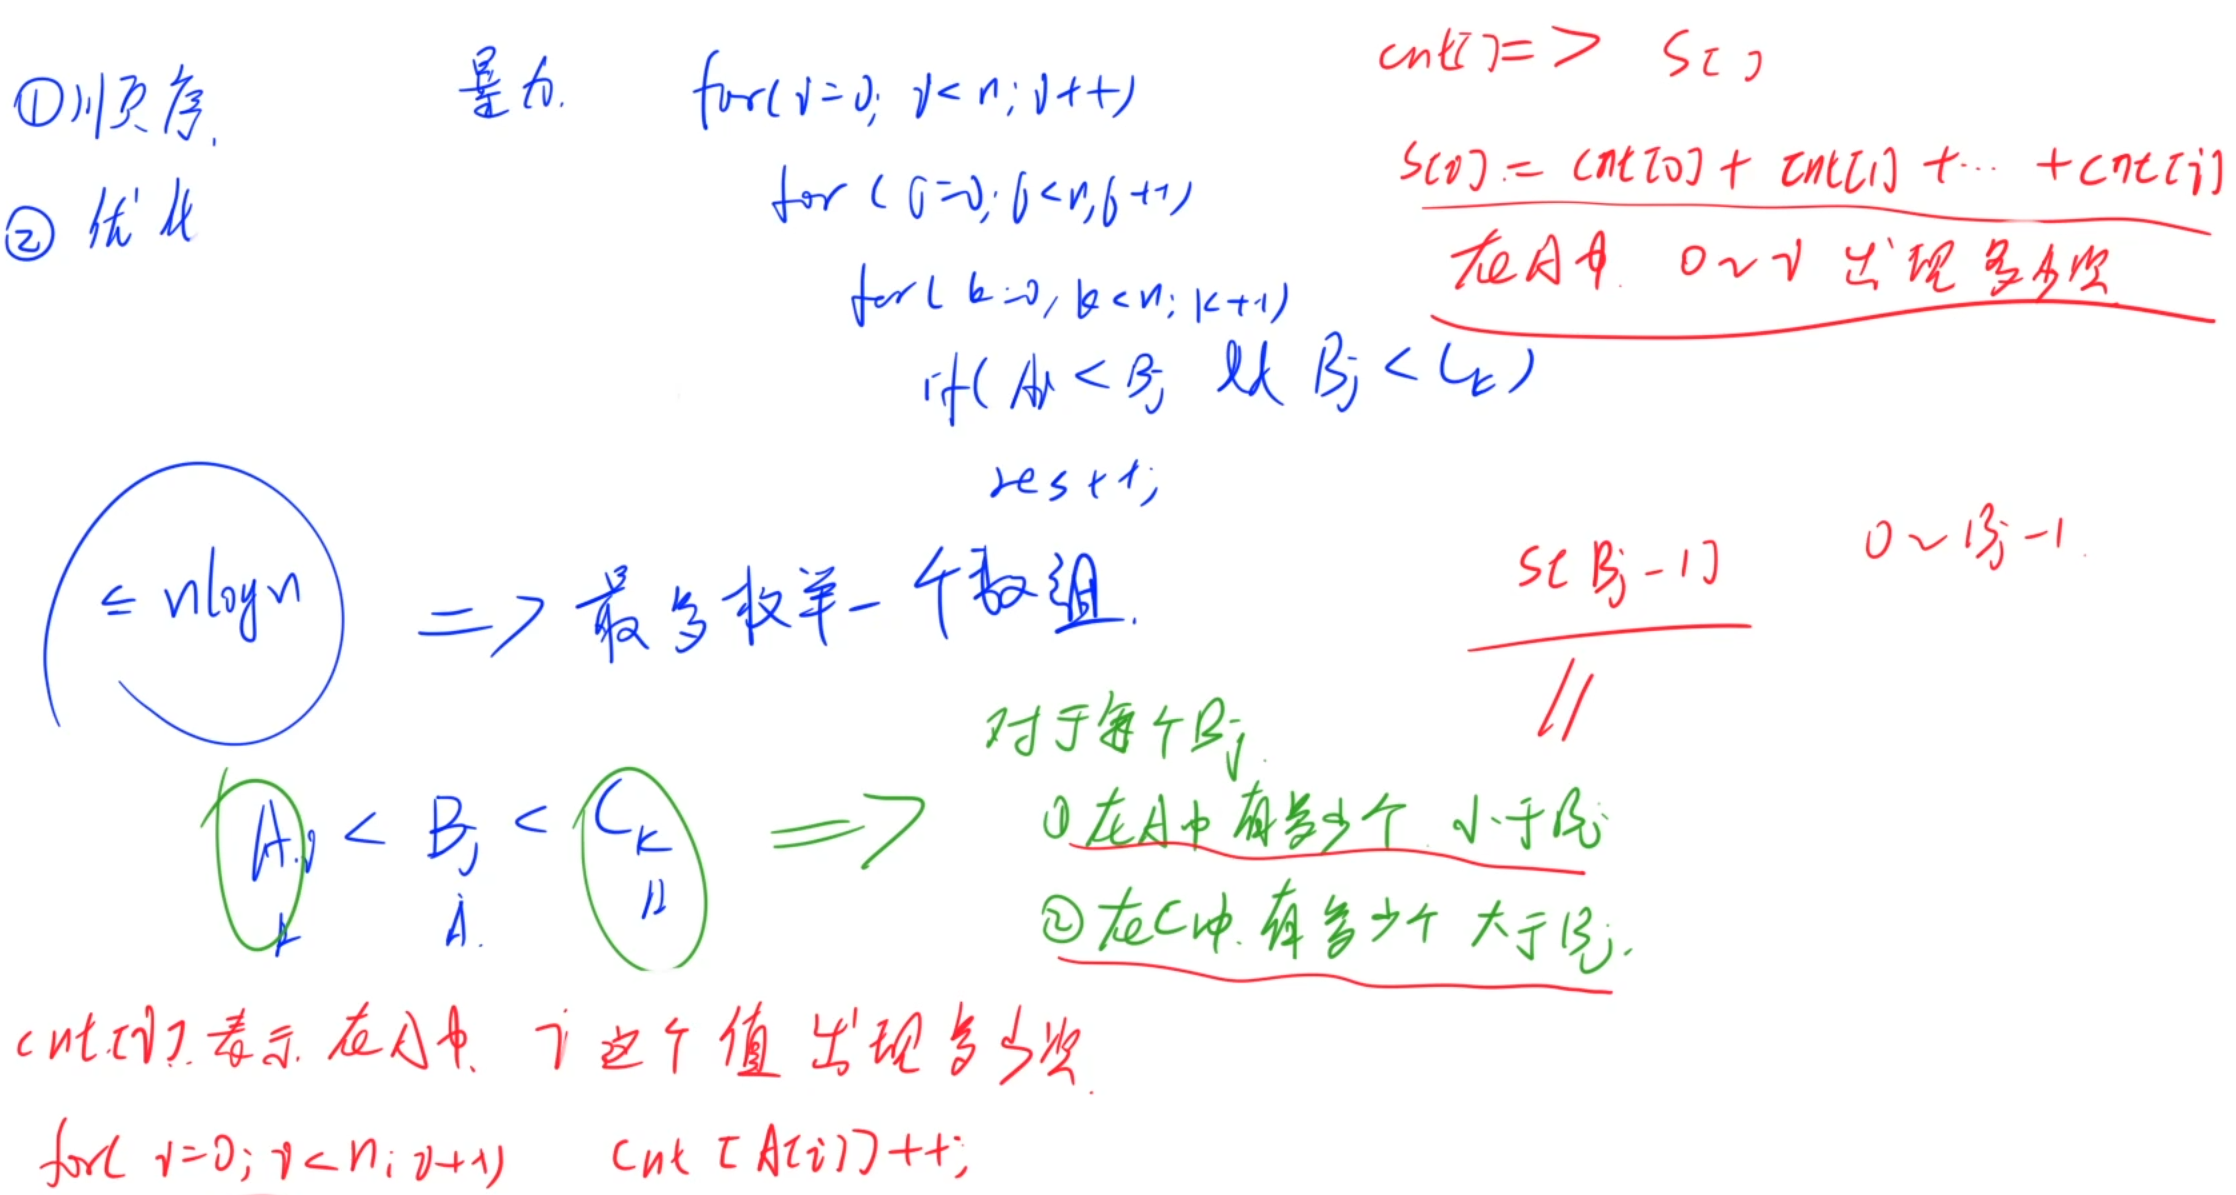 ①顺序.
② 优化
暴力.
for(i=0; i<n; i++)
for(j=0; j<n; j++)
for(k=0; k<n; k++)
if(Ai < Bj && Bj < Ck)
res++;
cnt[] => S[]
S[i] = cnt[0] + cnt[1] + ... + cnt[i]
在A中. 0~i 出现多少次
≤ nlogn => 最多枚举一个数组.
S[Bj-1] 0~Bj-1.
Ai < Bj < Ck =>
对于每个Bj.
①在A中有多少个 小于Bj
②在C中.有多少个 大于Bj.
cnt[i].表示.在A中. i这个值出现多少次.
for(i=0; i<n; i++) cnt[A[i]]++;